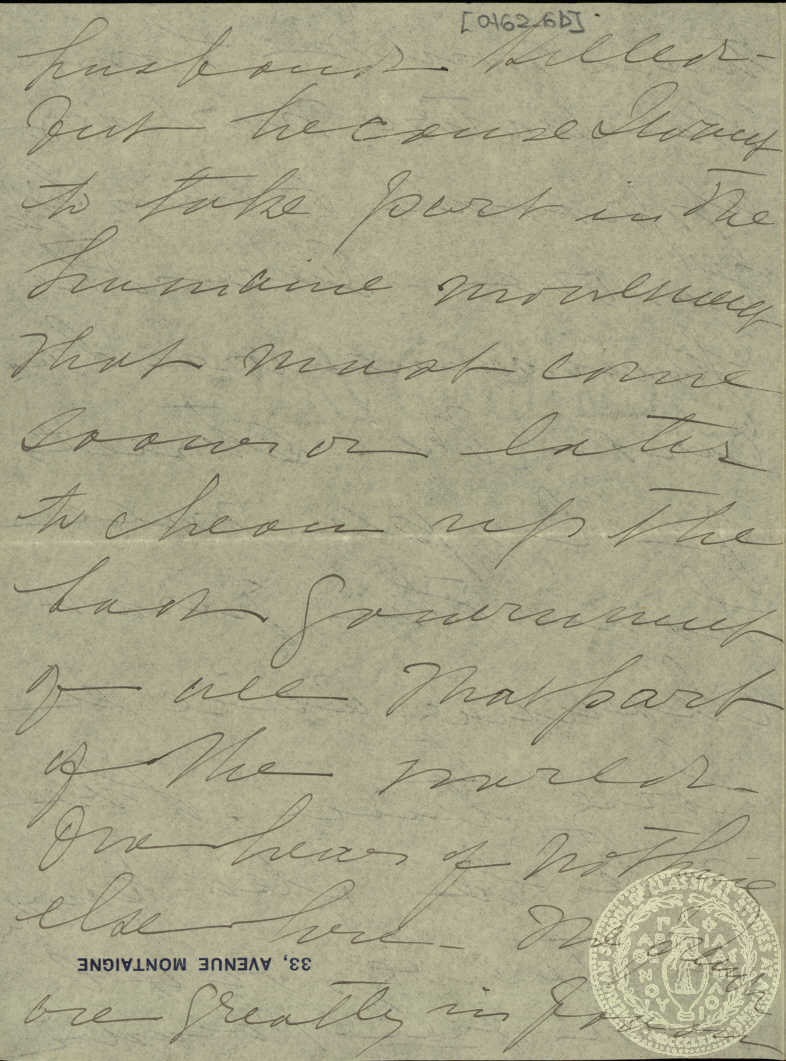 [0162-6b].
husband killed -
but because I want
to take part in the
humaine movement
that must come
sooner or later
to clean up the
bad government
of all that part
of the world -
One hears of nothing
else here - The
33, AVENUE MONTAIGNE
are greatly in
AMERICAN SCHOOL OF CLASSICAL STUDIES AT